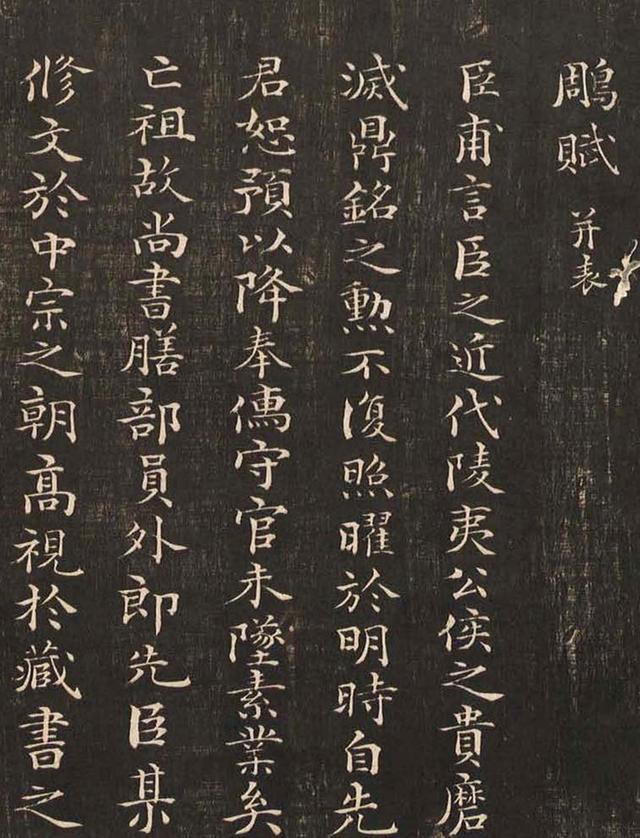 鵰賦 并表
臣甫言臣之近代陵夷公侯之貴磨
滅鼎銘之勲不復照曜於明時自先
君恕預以降奉儒守官未墜素業矣
亡祖故尚書膳部員外郎先臣某
修文於中宗之朝高視於藏書之